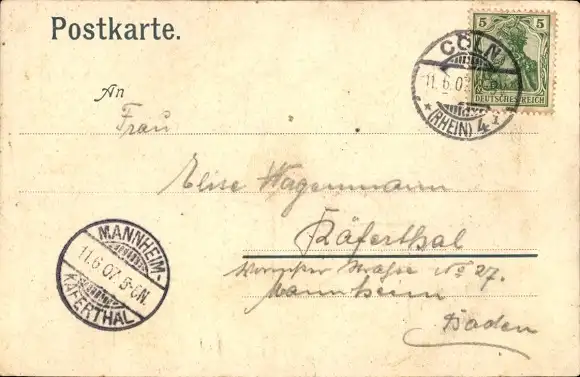 Postkarte.
5 5
DEUTSCHES REICH
CÖLN
11.6.07
* (RHEIN) 4 *
An
Frau
Elise Wagenmann
Käferthal
Wormser Straße No 27.
Mannheim
Baden
MANNHEIM-
11.6.07. 5-6N.
KÄFERTHAL